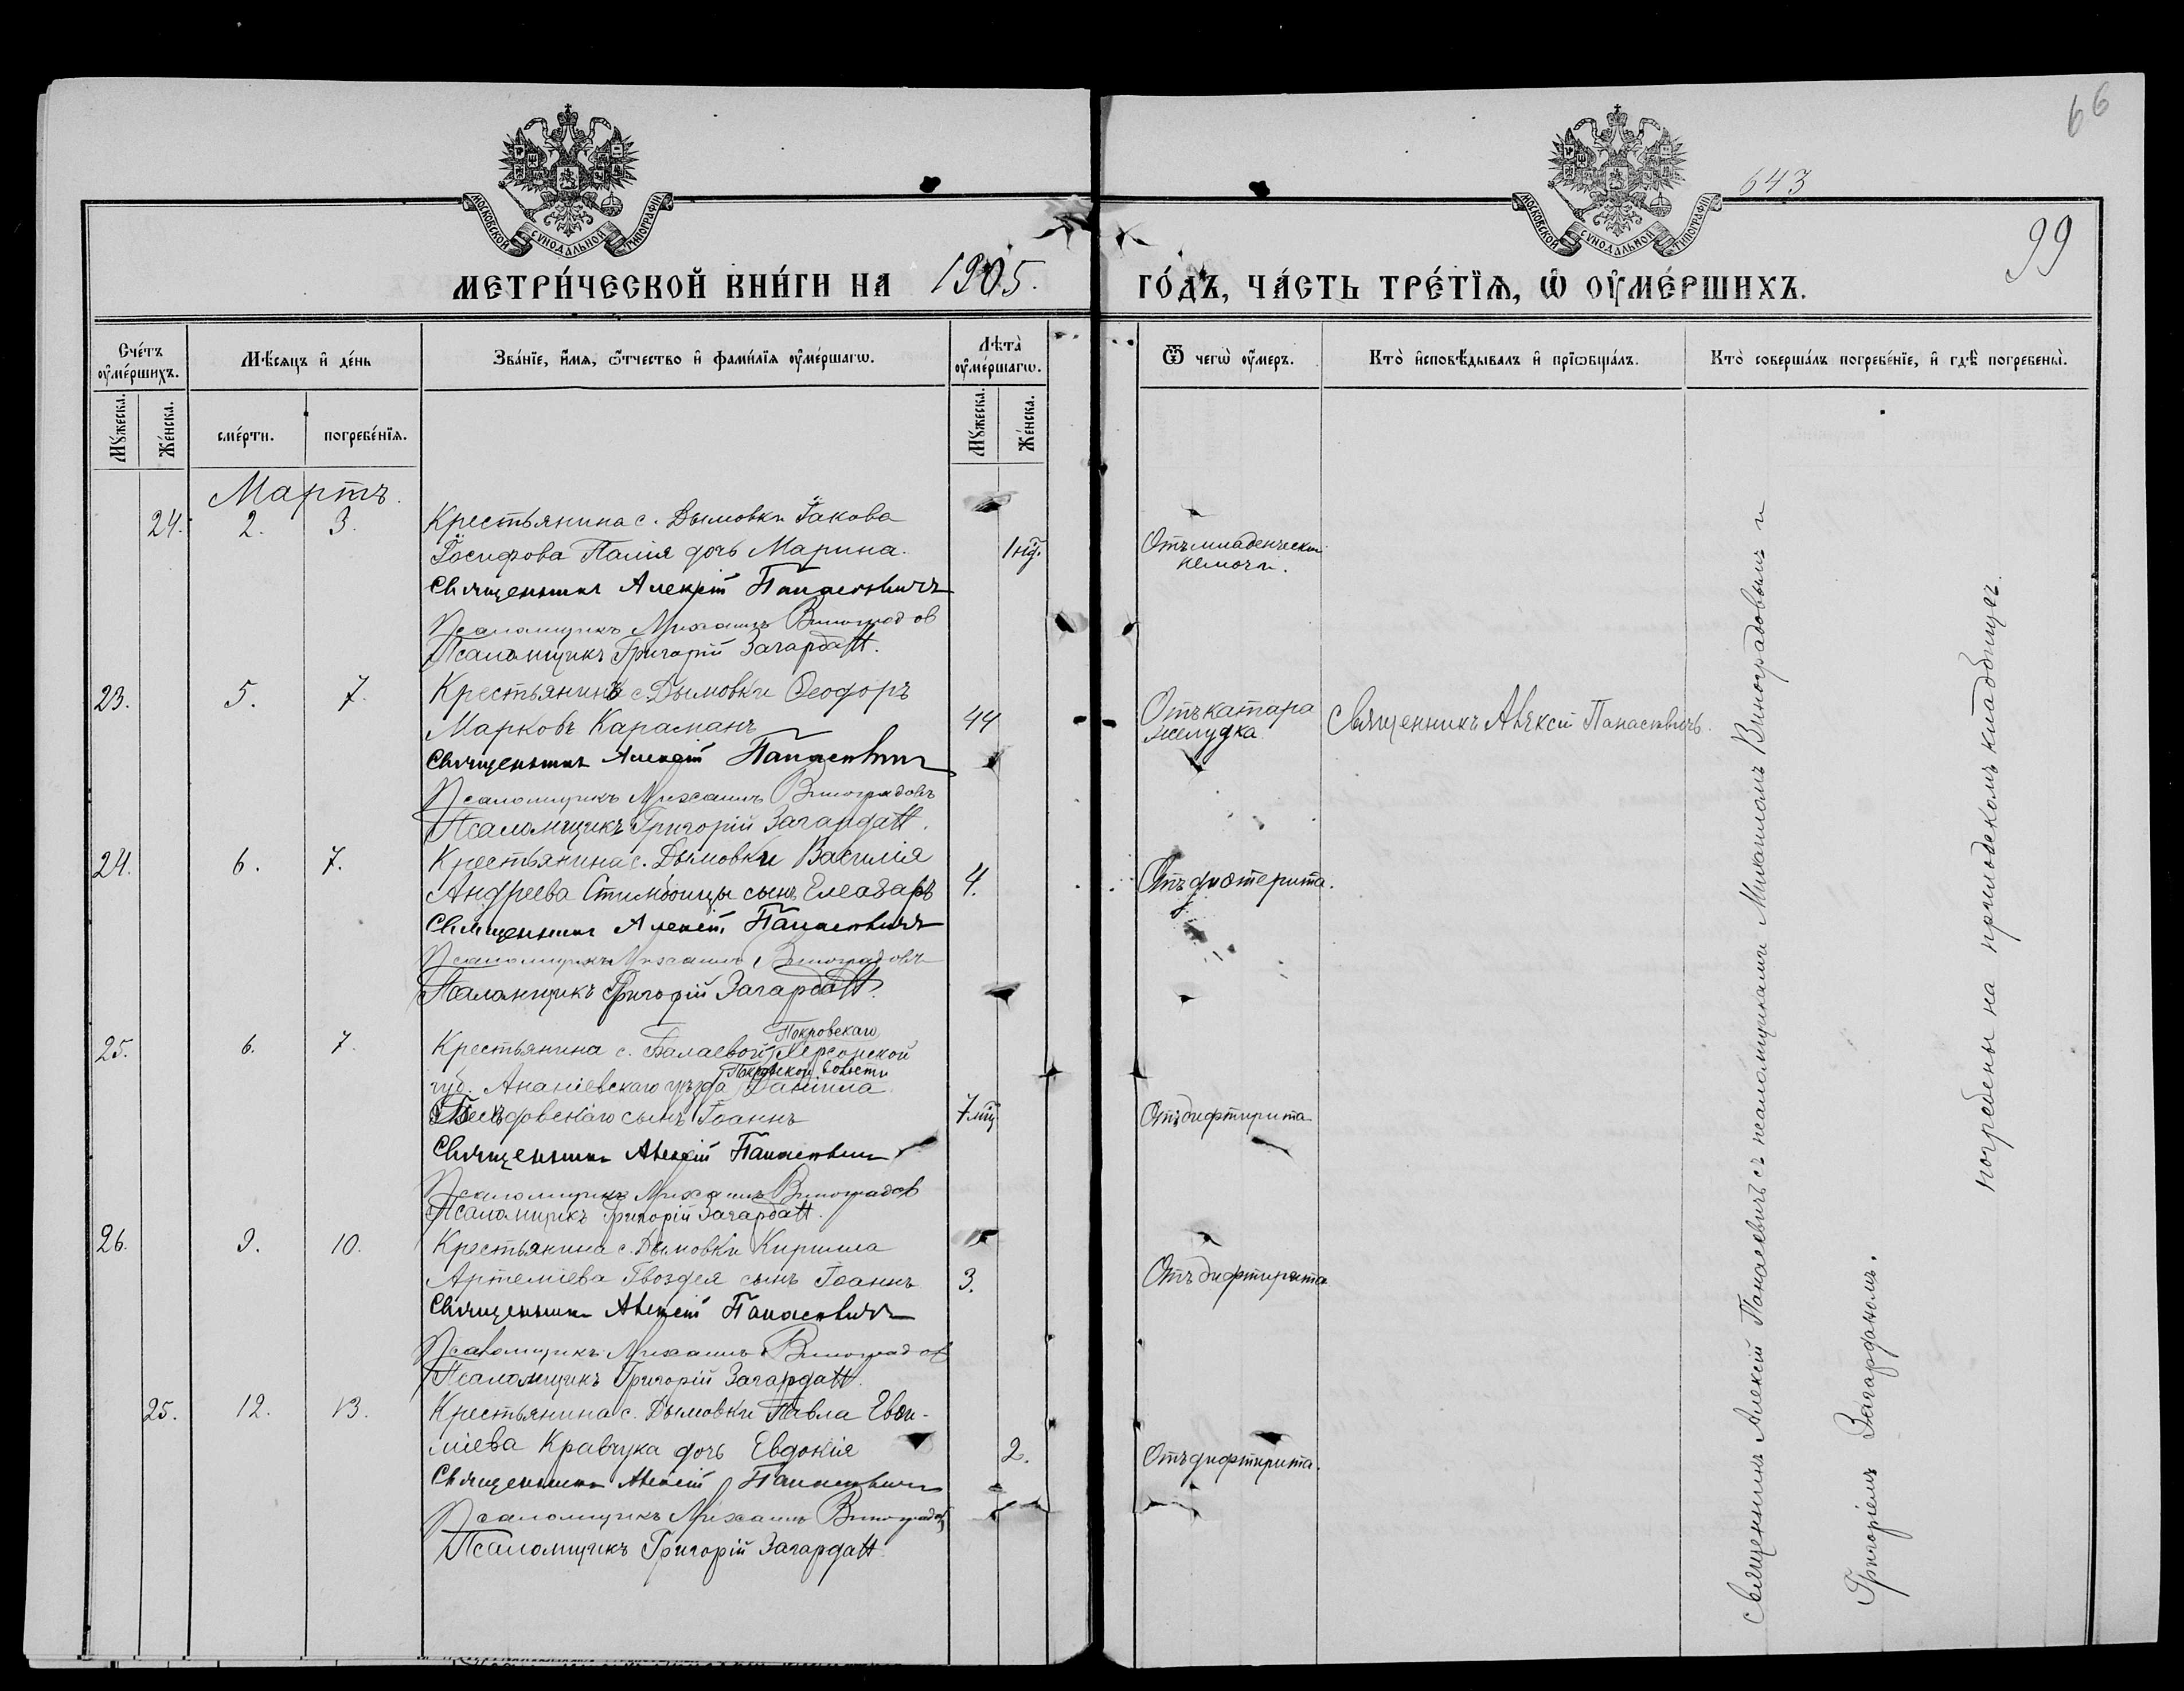 66
643
99
МОСКОВСКОЙ СУНОДАЛЬНОЙ ТИПОГРАФІИ
МОСКОВСКОЙ СУНОДАЛЬНОЙ ТИПОГРАФІИ
МЕТРИ́ЧЕСКОЙ КНИ́ГИ НА 1905.
ГО́ДЪ, ЧА́СТЬ ТРЕ́ТЇѦ, Ѡ ОУ҆МЕ́РШИХЪ.
Сче́тъ оу҆ме́ршихъ.
Мѣ́сѧцъ и҆ де́нь
Зва́нїе, и҆́мѧ, ѻ҆́тчество и҆ фами́лїѧ оу҆ме́ршагѡ.
Лѣта̀ оу҆ме́ршагѡ.
Ѿ чегѡ̀ оу҆́меръ.
Кто̀ и҆сповѣ́дывалъ и҆ прїѡбща́лъ.
Кто̀ соверша́лъ погребе́нїе, и҆ гдѣ̀ погребены̀.
Мꙋ́жеска.
Же́нска.
сме́рти.
погребе́нїѧ.
Мꙋ́жеска.
Же́нска.
Мартъ.
24. 2. 3. Крестьянина с. Дымовки Іакова
Іосифова Палія дочь Марина. 1 нд. Отъ младенческ.
немочи.
Священникъ Алексій Панасевичъ
Псаломщикъ Михаилъ Виноградов
Псаломщикъ Григорій
23. 5. 7. Крестьянинъ с. Дымовки Ѳеодоръ
Марковъ Караманъ 44 Отъ катара
желудка. Священникъ Алексій Панасевичъ.
Священникъ Алексій Панасевич
Псаломщикъ Михаилъ Виноградовъ
Псаломщикъ Григорій
24. 6. 7. Крестьянина с. Дымовки Василія
Андреева сынъ Елеазаръ 4. Отъ дифтерита.
Священникъ Алексій Панасевичъ
Псаломщикъ Михаилъ Виноградовъ
Псаломщикъ Григорій
Покровскаго
25. 6. 7. Крестьянина с. Балаевой Херсонской
Покровской волости
губ. Ананіевскаго уѣзда Даніила
сынъ Іоаннъ 7 мц Отъ дифтирита
Священникъ Алексій Панасевич
Псаломщикъ Михаилъ Виноградов
Псаломщикъ Григорій
26. 9. 10. Крестьянина с. Дымовки Кирилла
Артеміева Гвоздея сынъ Іоаннъ 3. Отъ дифтирита
Священникъ Алексій Панасевичъ
Псаломщикъ Михаилъ Виноградов
Псаломщикъ Григорій
25. 12. 13. Крестьянина с. Дымовки Павла Евѳи-
міева Кравчука дочь Евдокія 2. Отъ дифтирита.
Священникъ Алексій Панасевичъ
Псаломщикъ Михаилъ Виноградов
Псаломщикъ Григорій
Священникъ Алексій Панасевичъ съ псаломщиками Михаиломъ Виноградовымъ и
Григоріемъ
погребены на приходскомъ кладбищѣ.